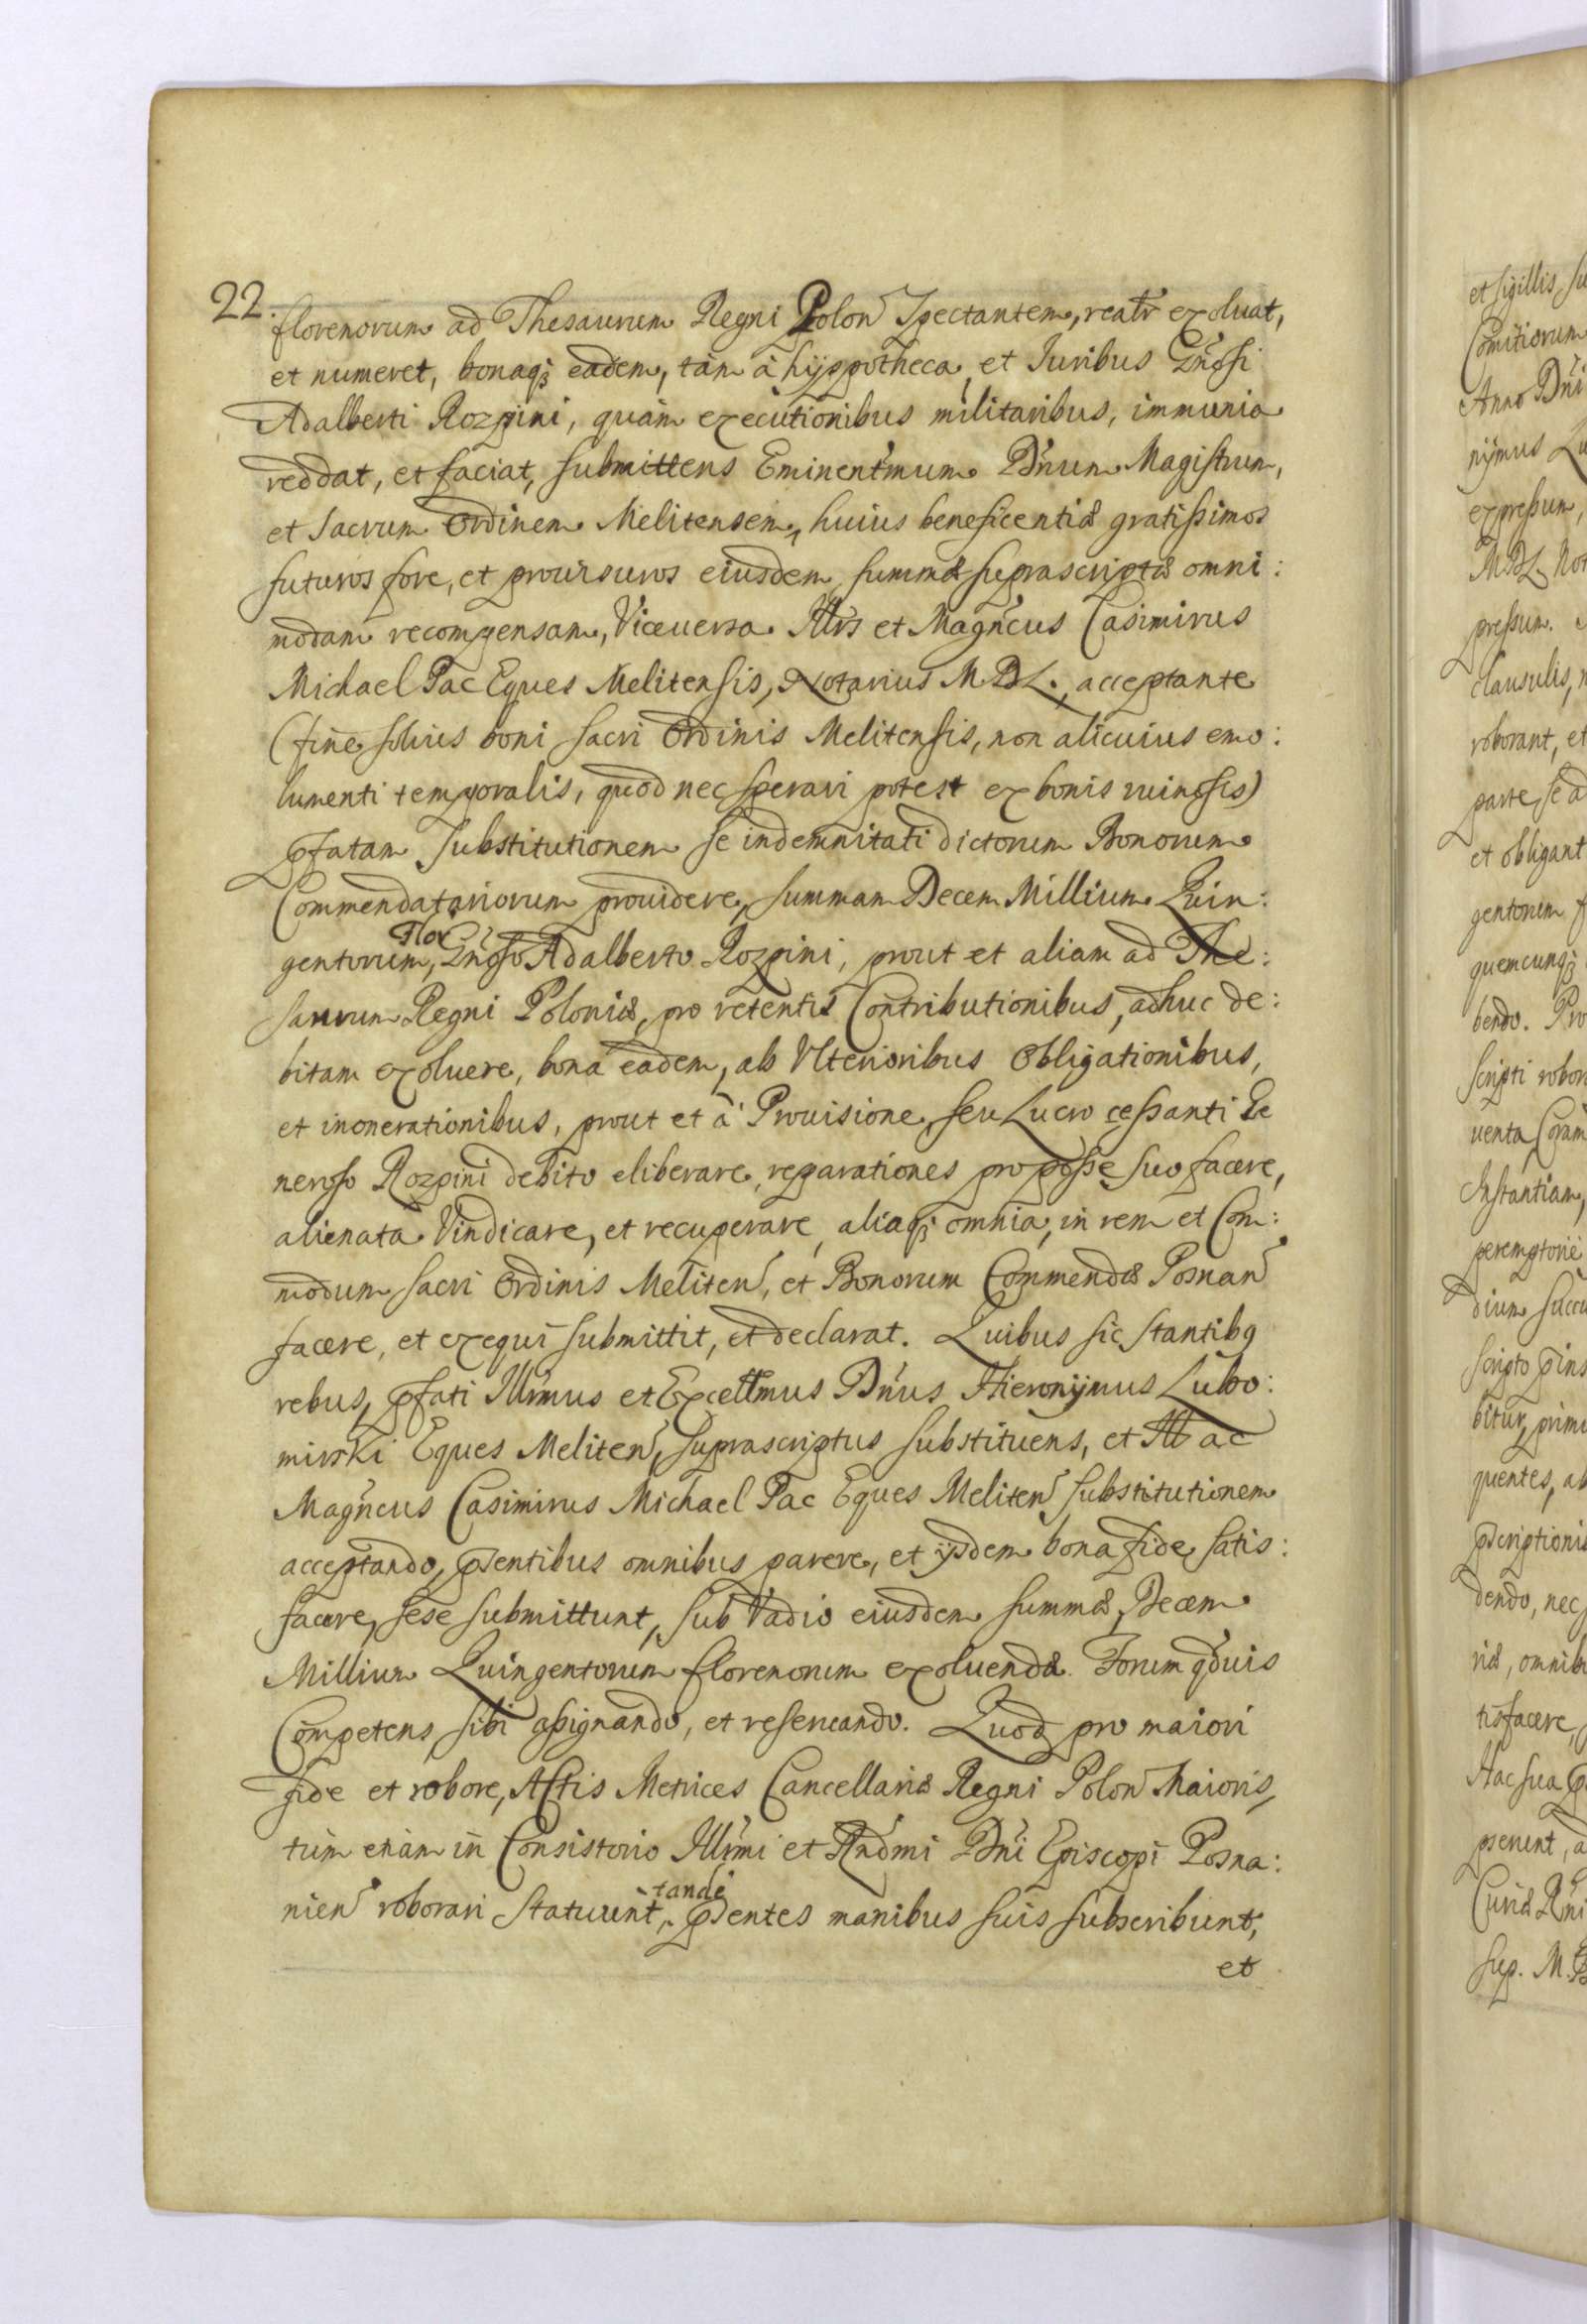 22.
florenorum ad Thesaurum Regni Polon Spectantem, realr exoluat,
et numeret, bonaqꝫ eadem, tàm à hÿppotheca, et Iuribus Gnosi
Adalberti Rozpini, quàm executionibus militaribus, immunia
reddat, et faciat, submittens Eminentmum Dnum Magistrum,
et Sacrum Ordinem Melitensem, huius beneficentiæ gratissimos
futuros fore, et prouisuros eiusdem summæ suprascriptæ omni:
modam recompensam, Viceuersa Illrs et Magncus Casimirus
Michael Pac Eques Melitensis, Notarius M D L., acceptante
(fine solius boni Sacri Ordinis Melitensis, non alicuius emo:
lumenti temporalis, quod nec sperari potest ex bonis ruinosis)
pfatam Substitutionem se indemnitati dictorum Bonorum
Commendatariorum prouidere, summam Decem Millium Quin:
gentorum, Flor Gnoso Adalberto Rozpini, prout et aliam ad The:
saurum Regni Poloniæ, pro retentis Contributionibus, adhuc de:
bitam exoluere, bona eadem, ab Vlterioribus Obligationibus,
et inonerationibus, prout et à Prouisione, seu Lucro cessanti Ge
neroso Rozpini debito eliberare, reparationes pro posse suo facere,
alienata Vindicare, et recuperare, aliaqꝫ omnia, in rem et Com:
modum Sacri Ordinis Meliten, et Bonorum Commendæ Posnan
facere, et exequi submittit, et declarat. Quibus sic stantibꝯ
rebus, pfati Illrmus et Excellmus Dnus Hieronÿmus Lubo:
mirski Eques Meliten, suprascriptus substituens, et Ill ac
Magncus Casimirus Michael Pac Eques Meliten substitutionem
acceptando, psentibus omnibus parere, et ÿsdem bona fide satis:
facere, sese submittunt, sub Vadio eiusdem summæ, Decem
Millium Quingentorum florenorum exoluendæ. Forum qduis
Competens sibi assignando, et reseruando. Quod pro maiori
fide et robore, Actis Metrices Cancellariæ Regni Polon Maioris,
tùm etiàm in Consistorio Illrmi et Rndmi Dni Episcopi Posna:
nien roborari statuunt, tande psentes manibus suis subscribunt,
et